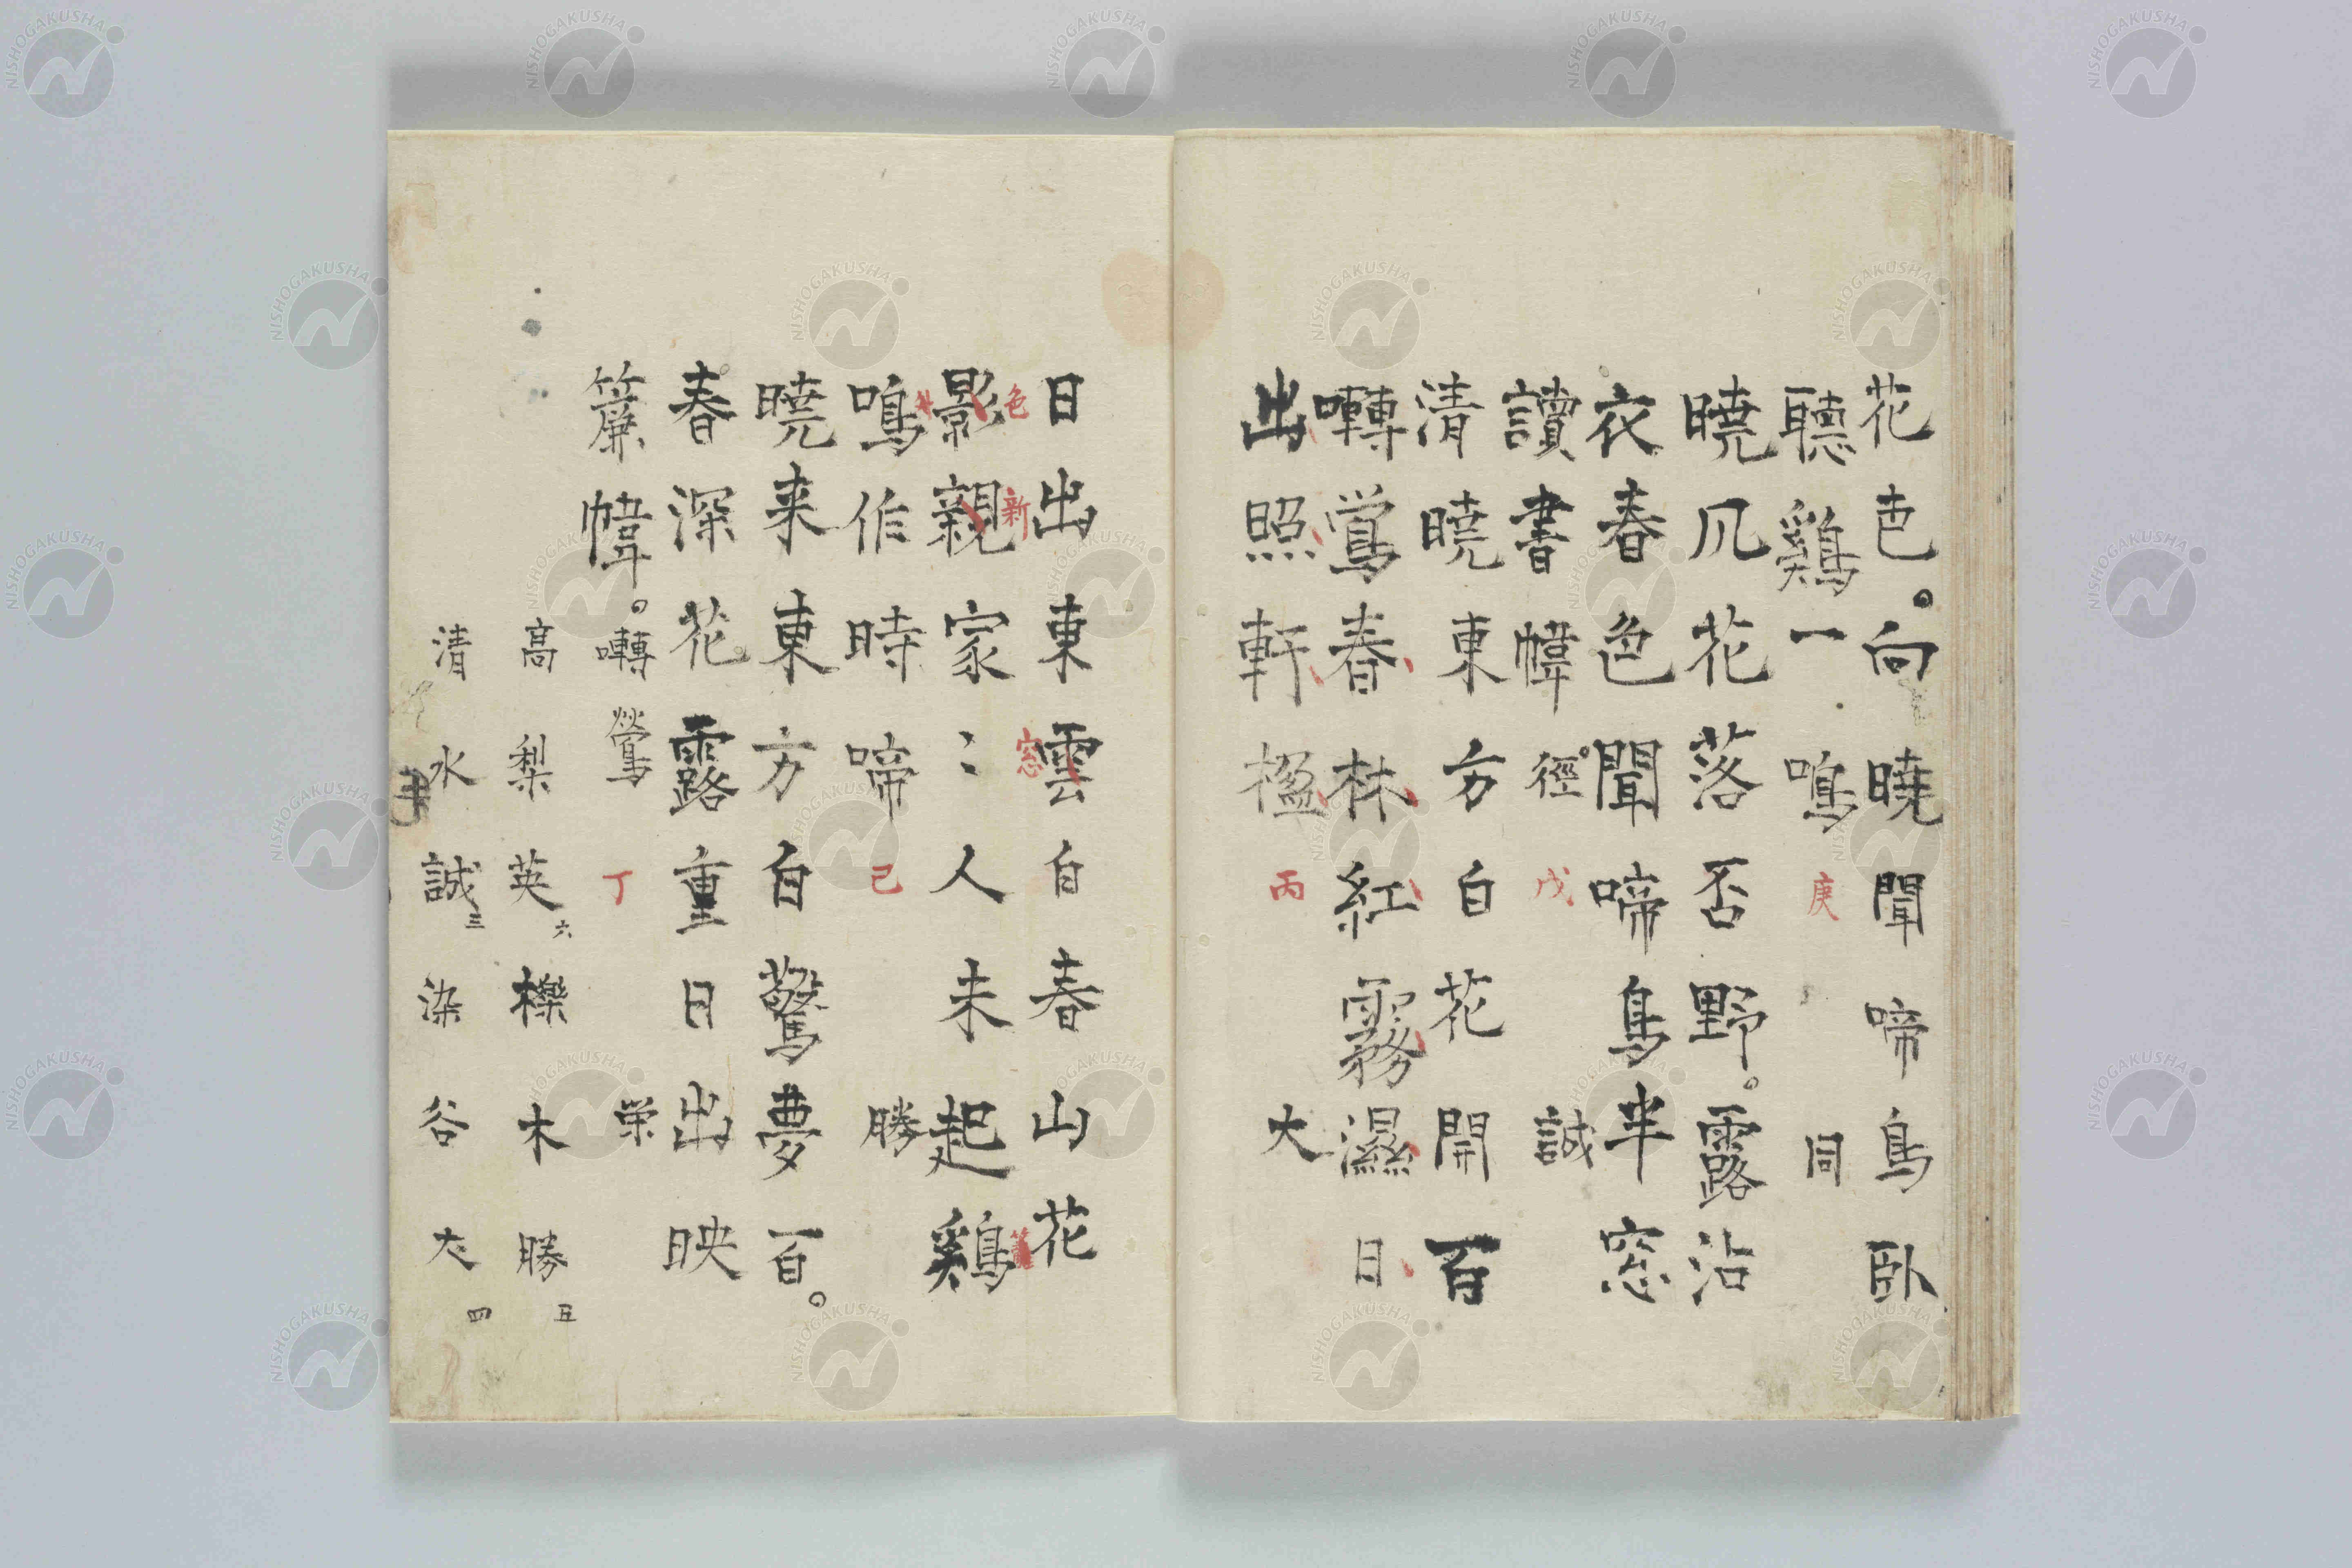 花色。向曉聞啼鳥臥
聽鷄一鳴 庚 同
曉凡花落否野。露沾
衣春色聞啼鳥半窓
讀書幃 徑。 戊 誠
清曉東方白花開百
囀鶯春林紅霧濕日
出照軒楹 丙 大
日出東雲白春山花
窓
影親家〻人未起鷄
色 新
鳴作時啼 己 勝
曉来東方自驚夢百。
春深花。露重日出映
簾幃。囀鶯 丁 栄
高梨英六 櫟木勝五
清水誠三 染谷大四
NISHOGAKUSHA